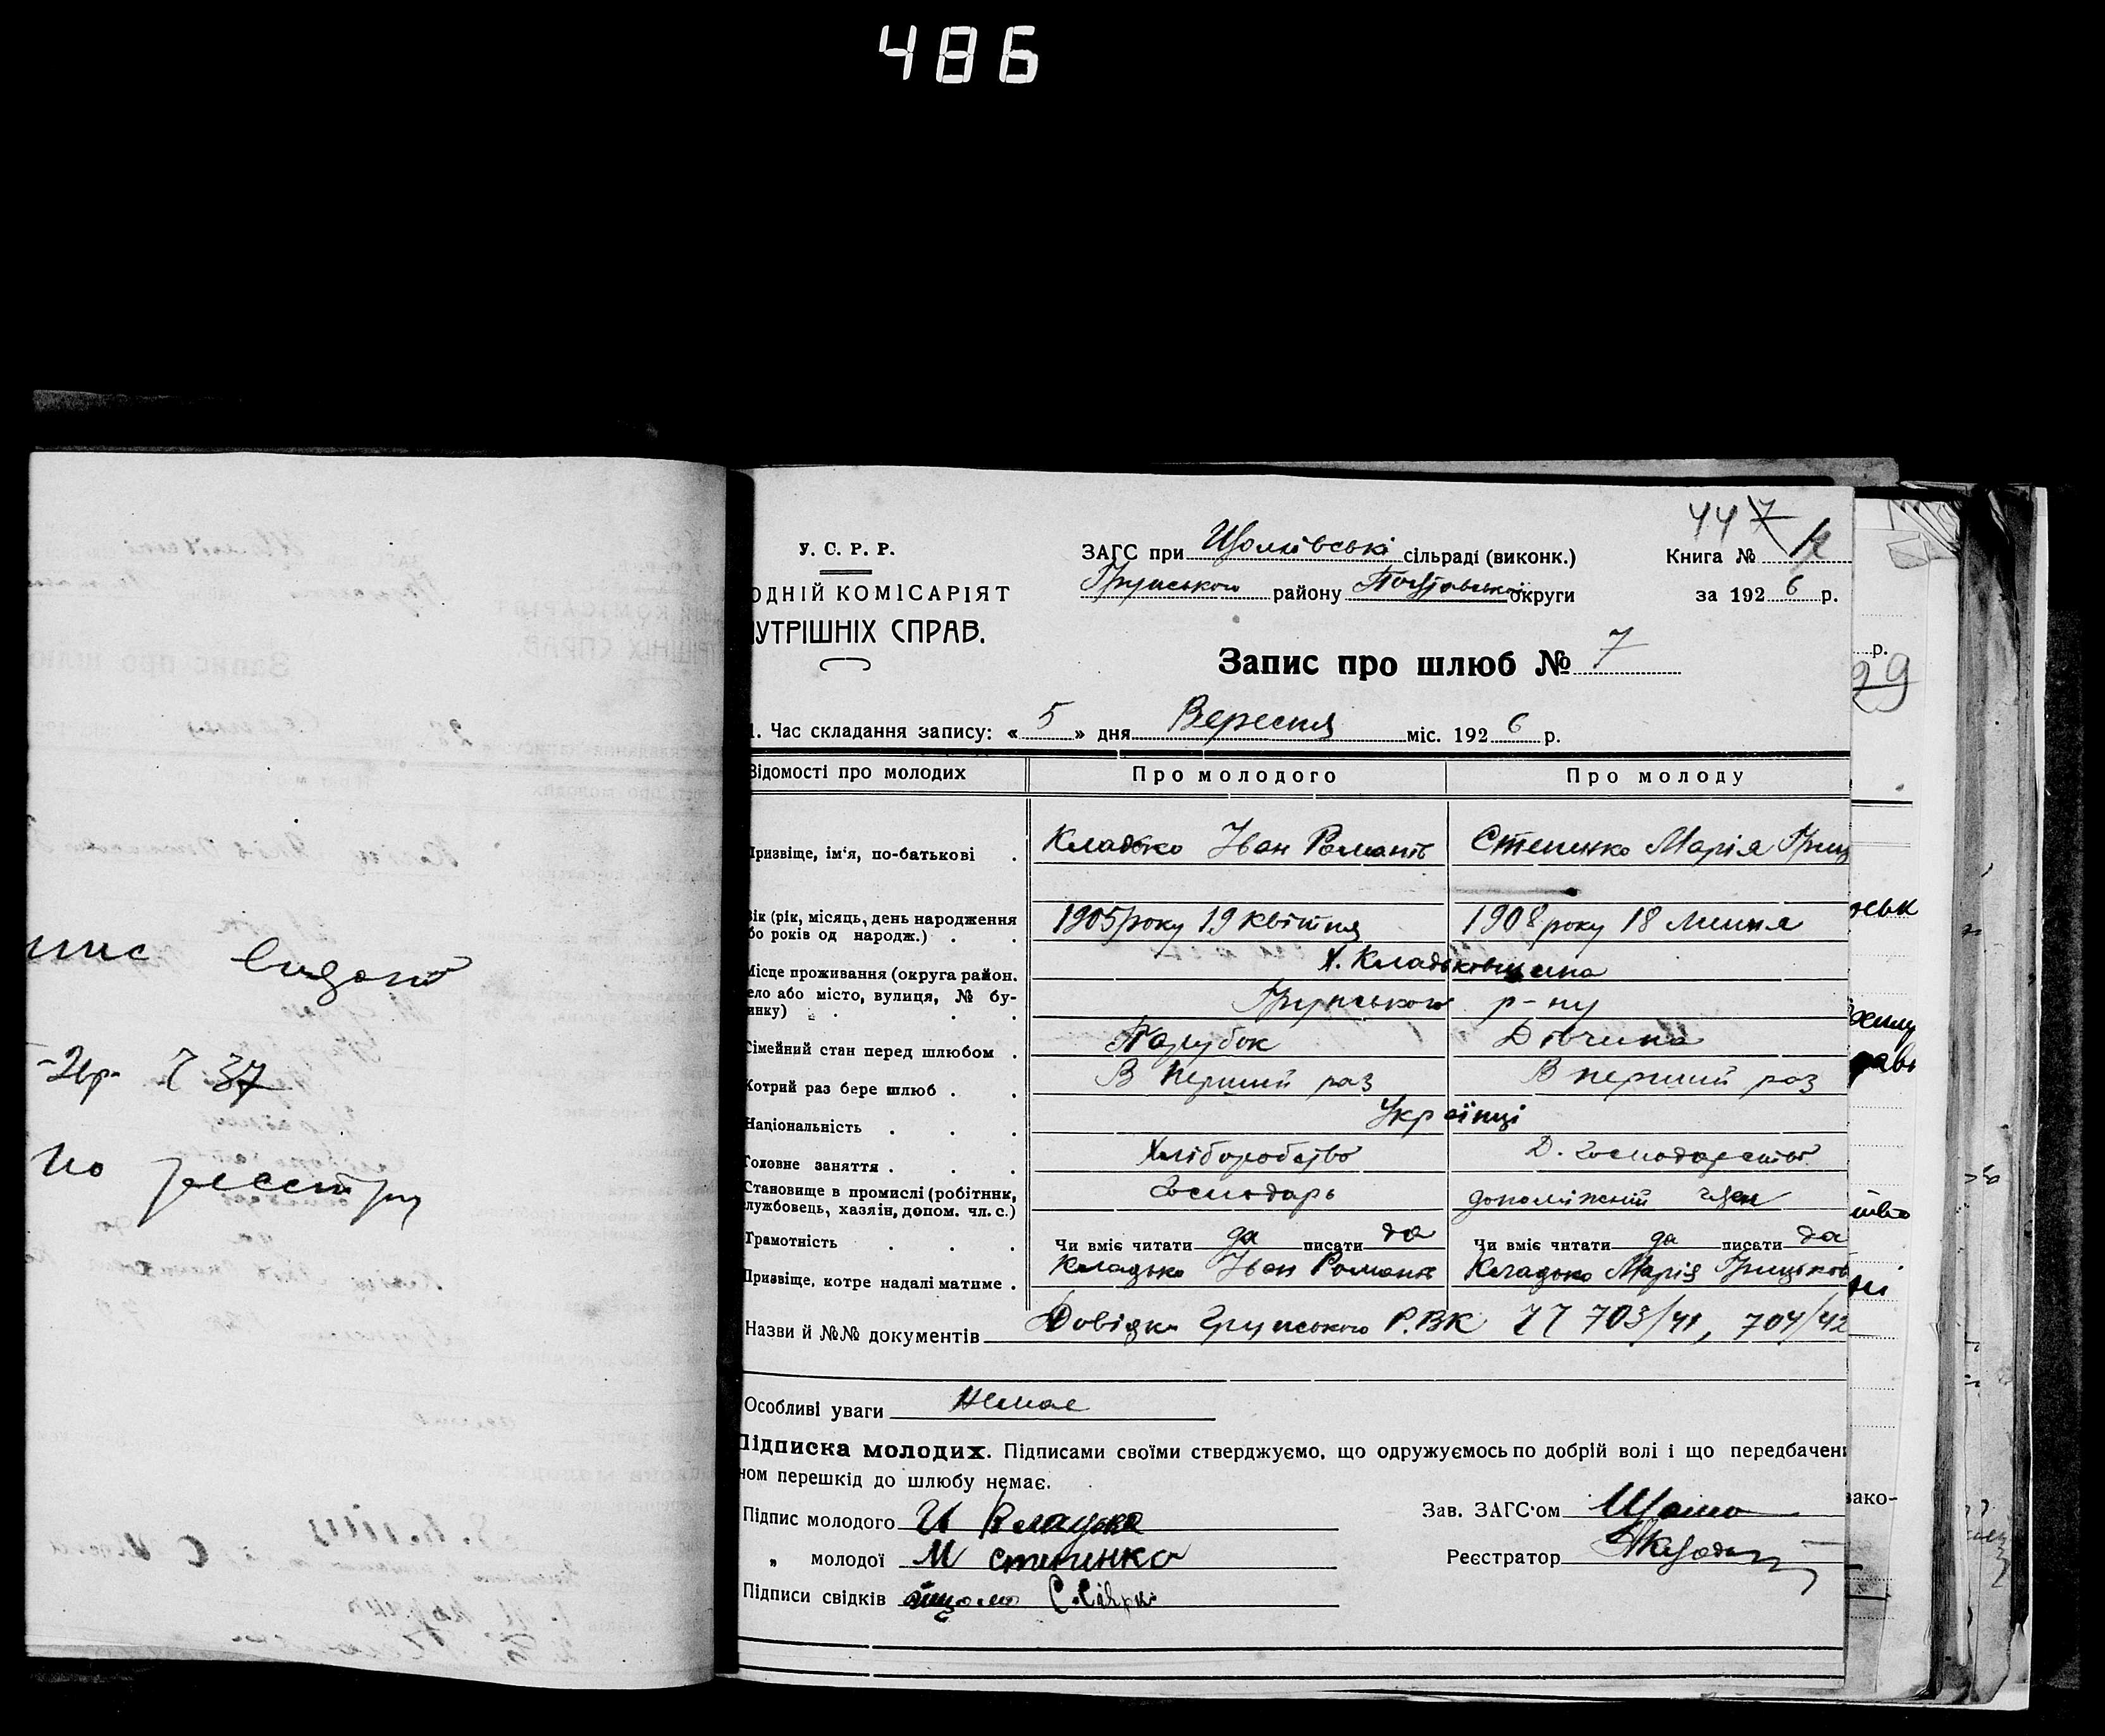 486
447
У. С. Р. Р.
ЗАГС при сільраді (виконк.)
Книга №
ОДНІЙ КОМІСАРІЯТ
Грунського району Полтавської округи
за 192 6 р.
УТРІШНІХ СПРАВ.
Запис про шлюб № 7
р.
99
1. Час складання запису: « 5 » дня Вересня міс. 192 6 р.
Відомості про молодих Про молодого Про молоду
Призвіще, ім'я, по-батькові . Кладько Іван Романів Степенко Марія Гриц
Вік (рік, місяць, день народження 1905 року 19 квітня 1908 року 18 липня
бо років од народж.) . .
Місце проживання (округа район. Х. Кладьковщина
ело або місто, вулиця, № бу- Грунського р-ну
инку) . . .
Сімейний стан перед шлюбом . Парубок Дівчина
Котрий раз бере шлюб . . В перший раз В перший раз
Національність . . . Українці
Головне заняття . . . Хліборобство Д. господарство
Становище в промислі (робітник, Господарь допоміжний член
лужбовець, хазяїн, допом. чл. с.)
Грамотність . . . Чи вміє читати да писати да Чи вміє читати да писати да
Призвіще, котре надалі матиме . Кладько Іван Романів Кладько Марія Грицьков
Назви й №№ документів Довідки Грунського Р.ВК 703/41, 704/42
Особливі уваги Немає
Підписка молодих. Підписами своїми стверджуємо, що одружуємось по добрій волі і що передбачени
ном перешкід до шлюбу немає.
ако-
Підпис молодого И Кладько
Зав. ЗАГС'ом
„ молодої М Степенко
Реєстратор
Підписи свідків
видано
37
по реєстру